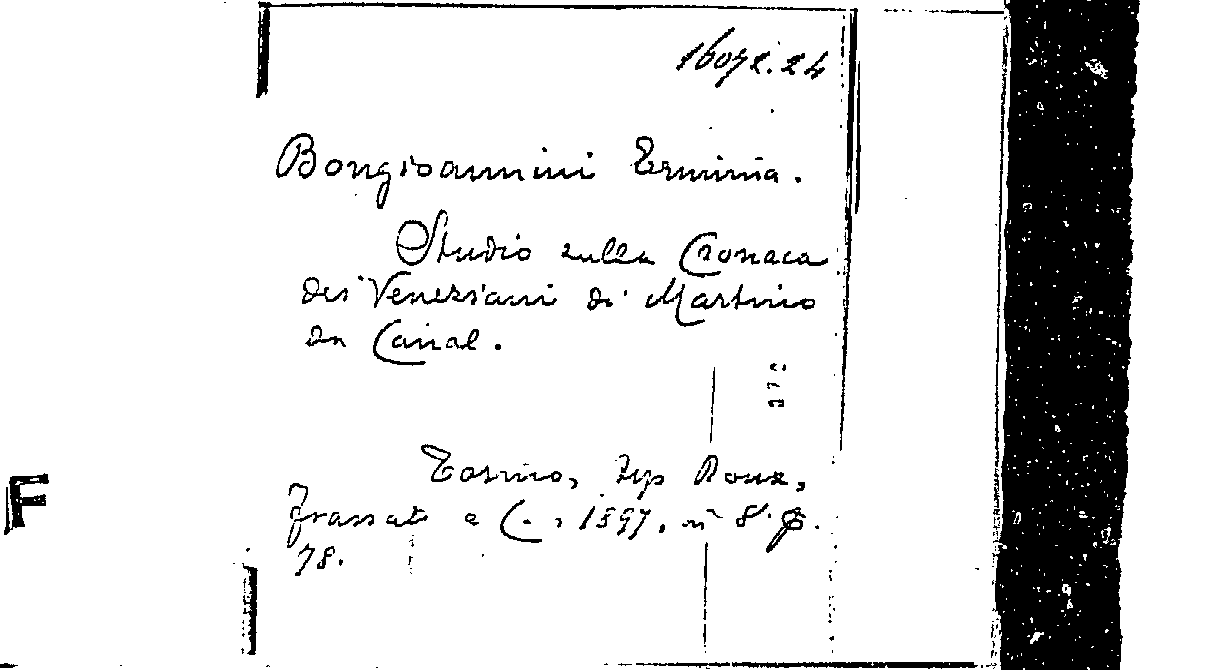 16072.24
Bongioannini Erminia.
Studio sulla Cronaca
dei Veneziani di Martino
da Canal.
Torino, Tip Roux,
Frassati e C. , 1897, in 8° p.
78.
F